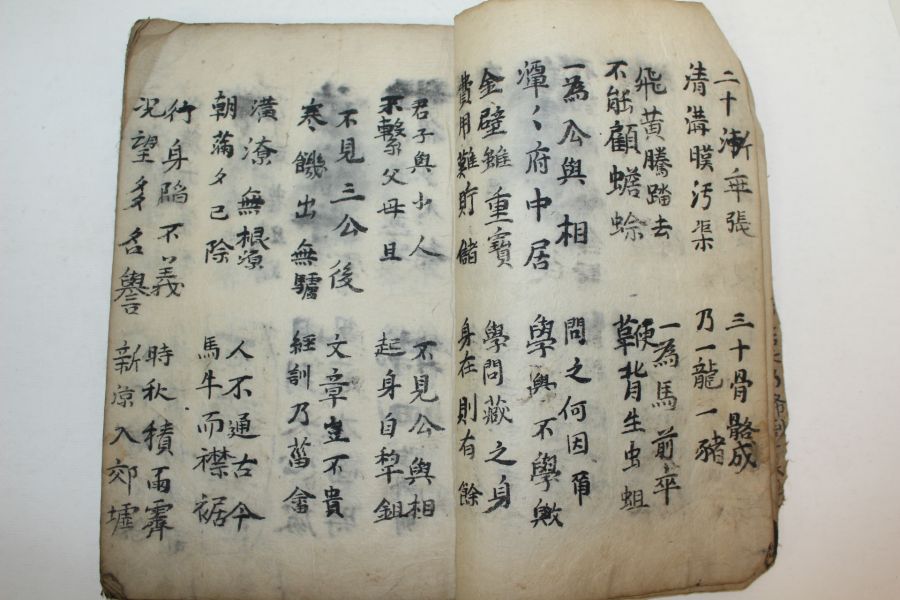 二十漸乖張
清溝暎汚渠
三十骨骼成
乃一龍一豬
飛黃騰踏去
不能顧蟾蜍
一為馬前卒
鞭背生虫蛆
一為公與相
潭〻府中居
問之何因爾
學與不學歟
金璧雖重寶
費用難貯儲
學問藏之身
身在則有餘
君子與小人
不繫父母且
不見公與相
起身自犂鉏
不見三公後
寒饑出無驢
文章豈不貴
經訓乃菑畬
潢潦無根源
朝滿夕已除
人不通古今
馬牛而襟裾
行身陷不義
況望多名譽
時秋積雨霽
新凉入郊墟